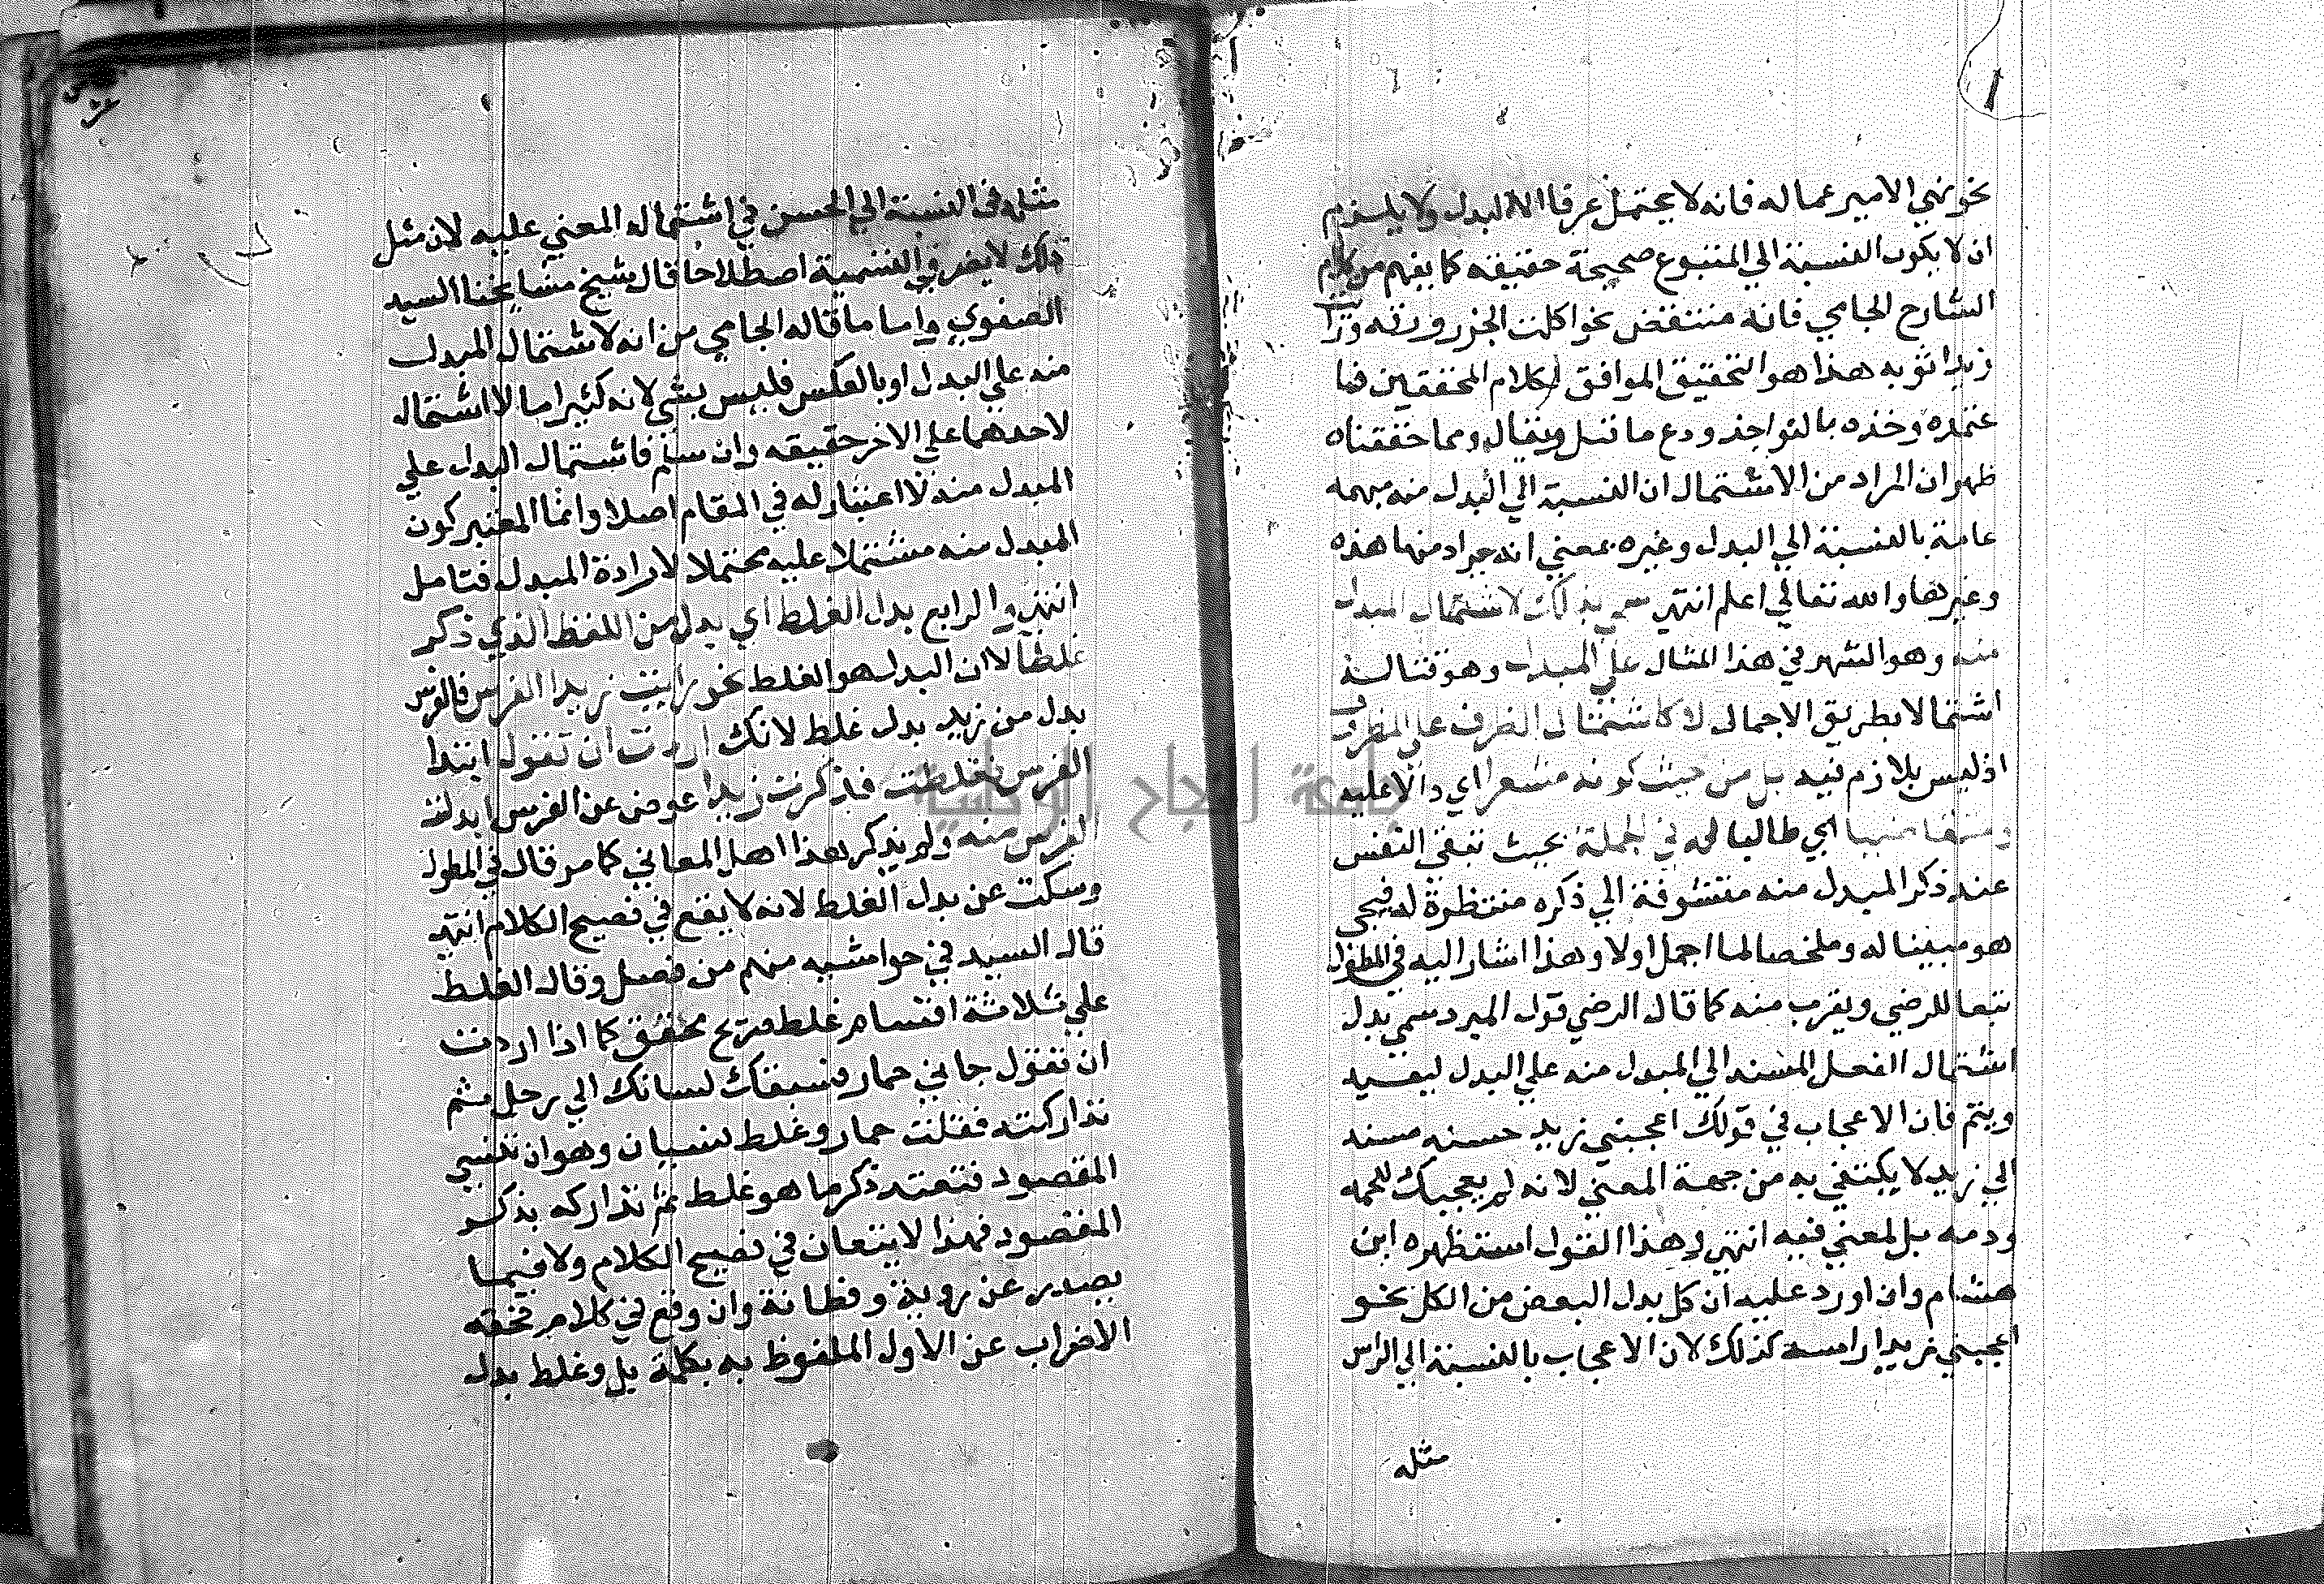 نحو نهي الامير عماله فانه لا يحتمل عرفا الا البدل ولا يلزم
ان لا يكون النسبة الي المتبوع صحيحة حقيقه كما يفهم من كلام
الشارح الجامي فانه منتقض بنحو اكلت الجزور ورقه
زيدا ثوبه هذا هو التحقيق الموافق لكلام المحققين فيا
عتمده وخذه بالنواجذ ودع ما قيل ويقال ومما حققناه
ظهر ان المراد من الاشتمال ان النسبة الي البدل منه مبهمه
عامة بالنسبة الي البدل وغيره بمعني انه يراد منها هذه
وغيرها والله تعالي اعلم انتهي سمي بذلك لاشتمال المبدل
منه وهو الشهر في هذا المثال علي المبدل وهو قتال
اشتمالا بطريق الاجمال لا كاشتمال الظرف علي المظروف
اذ ليس بلازم فيه بل من حيث كونه مشعرا اي دالا عليه
اي طالبا له في الجملة بحيث تبقي النفس
عند ذكر المبدل منه متشوقة الي ذكره منتظرة له فيجي
هو مبينا له وملخصا لما اجمل اولا وهذا اشار اليه في المطول
تبعا للرضي ويقرب منه كما قال الرضي قول المبرد سمي بدل
اشتمال الفعل المسند الي المبدل منه علي البدل ليفيد
ويتم فان الاعجاب في قولك اعجبني زيد حسنه مسند
الي زيد لا يكتفي به من جهة المعني لانه لم يعجبك للحمه
ودمه بل لمعني فيه انتهي وهذا القول استظهره ابن
هشام وان اورد عليه ان كل بدل البعض من الكل نحو
اعجبني زيد راسه كذلك لان الاعجاب بالنسبة الي الراس
مثله
مثله في النسبة الي الحسن في اشتمال المعني عليه لان مثل
ذلك لا يضر في التسمية اصطلاحا قال شيخ مشايخنا السيد
الصفوي واما ما قاله الجامي من انه لاشتمال المبدل
منه علي البدل او بالعكس فليس بشي لانه كثيرا ما لا اشتمال
لاحدهما علي الاخر حقيقه وان سلم فاشتمال البدل علي
المبدل منه لا اعتبار له في المقام اصلا وانما المعتبر كون
المبدل منه مشتملا عليه محتملا لارادة المبدل فتامل
انتهي والرابع بدل الغلط اي بدل من اللفظ الذي ذكر
غلطا لا ان البدل هو الغلط نحو رايت زيدا الفرس فالفرس
بدل من زيد بدل غلط لانك اردت ان تقول ابتدا
الفرس فغلطت فذكرت زيدا عوض عن الفرس ابدلت
الفرس منه ولم يذكر هذا اهل المعاني كما مر قال في المطول
وسكت عن بدل الغلط لانه لا يقع في فصيح الكلام انتهي
قال السيد في حواشيه منهم من فصل وقال الغلط
علي ثلاثة اقسام غلط صريح محقق كما اذا اردت
ان تقول جاني حمار فسبقك لسانك الي رجل ثم
تداركته فقلت حمار وغلط نسيان وهو ان تنسي
المقصود فتعتمد ذكر ما هو غلط ثم تداركه بذكر
المقصود فهذا لا يقعان في فصيح الكلام ولا فيما
يصدر عن روية وفطانة وان وقع في كلام فحقه
الاضراب عن الاول الملفوظ به بكلمة بل وغلط بدل
جامعة النجاح الوطنية